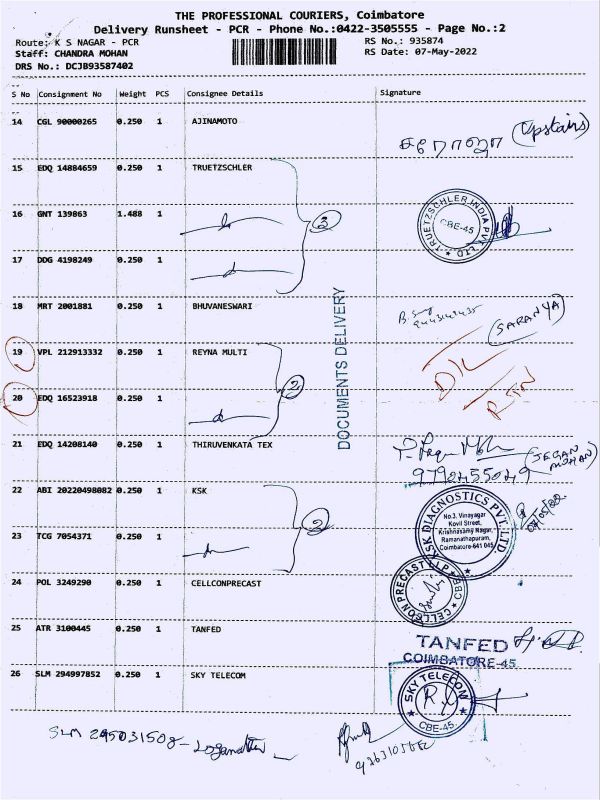 THE PROFESSIONAL COURIERS, Coimbatore
Delivery Runsheet - PCR - Phone No.:0422-3505555 - Page No.:2
Route: K S NAGAR - PCR
RS No.: 935874
Staff: CHANDRA MOHAN
RS Date: 07-May-2022
DRS No.: DCJB93587402
S No Consignment No Weight PCS Consignee Details Signature
14 CGL 90000265 0.250 1 AJINAMOTO
சரோஜா (Upstairs)
15 EDQ 14884659 0.250 1 TRUETZSCHLER
16 GNT 139863 1.488 1 3
TRUETZSCHLER INDIA PVT LTD
CBE-45
17 DDG 4198249 0.250 1
DOCUMENTS DELIVERY
18 MRT 2001881 0.250 1 BHUVANESWARI
(SARANYA)
19 VPL 212913332 0.250 1 REYNA MULTI
D/L
20 EDQ 16523918 0.250 1 2
RTN
21 EDQ 14208140 0.250 1 THIRUVENKATA TEX
(JEGAN MOHAN)
22 ABI 20220498082 0.250 1 KSK
KSK DIAGNOSTICS PVT. LTD
No.3, Vinayagar
Kovil Street,
Krishnasamy Nagar,
Ramanathapuram,
Coimbatore-641 045
07/05/22
23 TCG 7054371 0.250 1 2
24 POL 3249290 0.250 1 CELLCONPRECAST
25 ATR 3100445 0.250 1 TANFED
TANFED
COIMBATORE-45
26 SLM 294997852 0.250 1 SKY TELECOM
SKY TELECOM
CBE-45.
SLM 295031508 - Loganathan